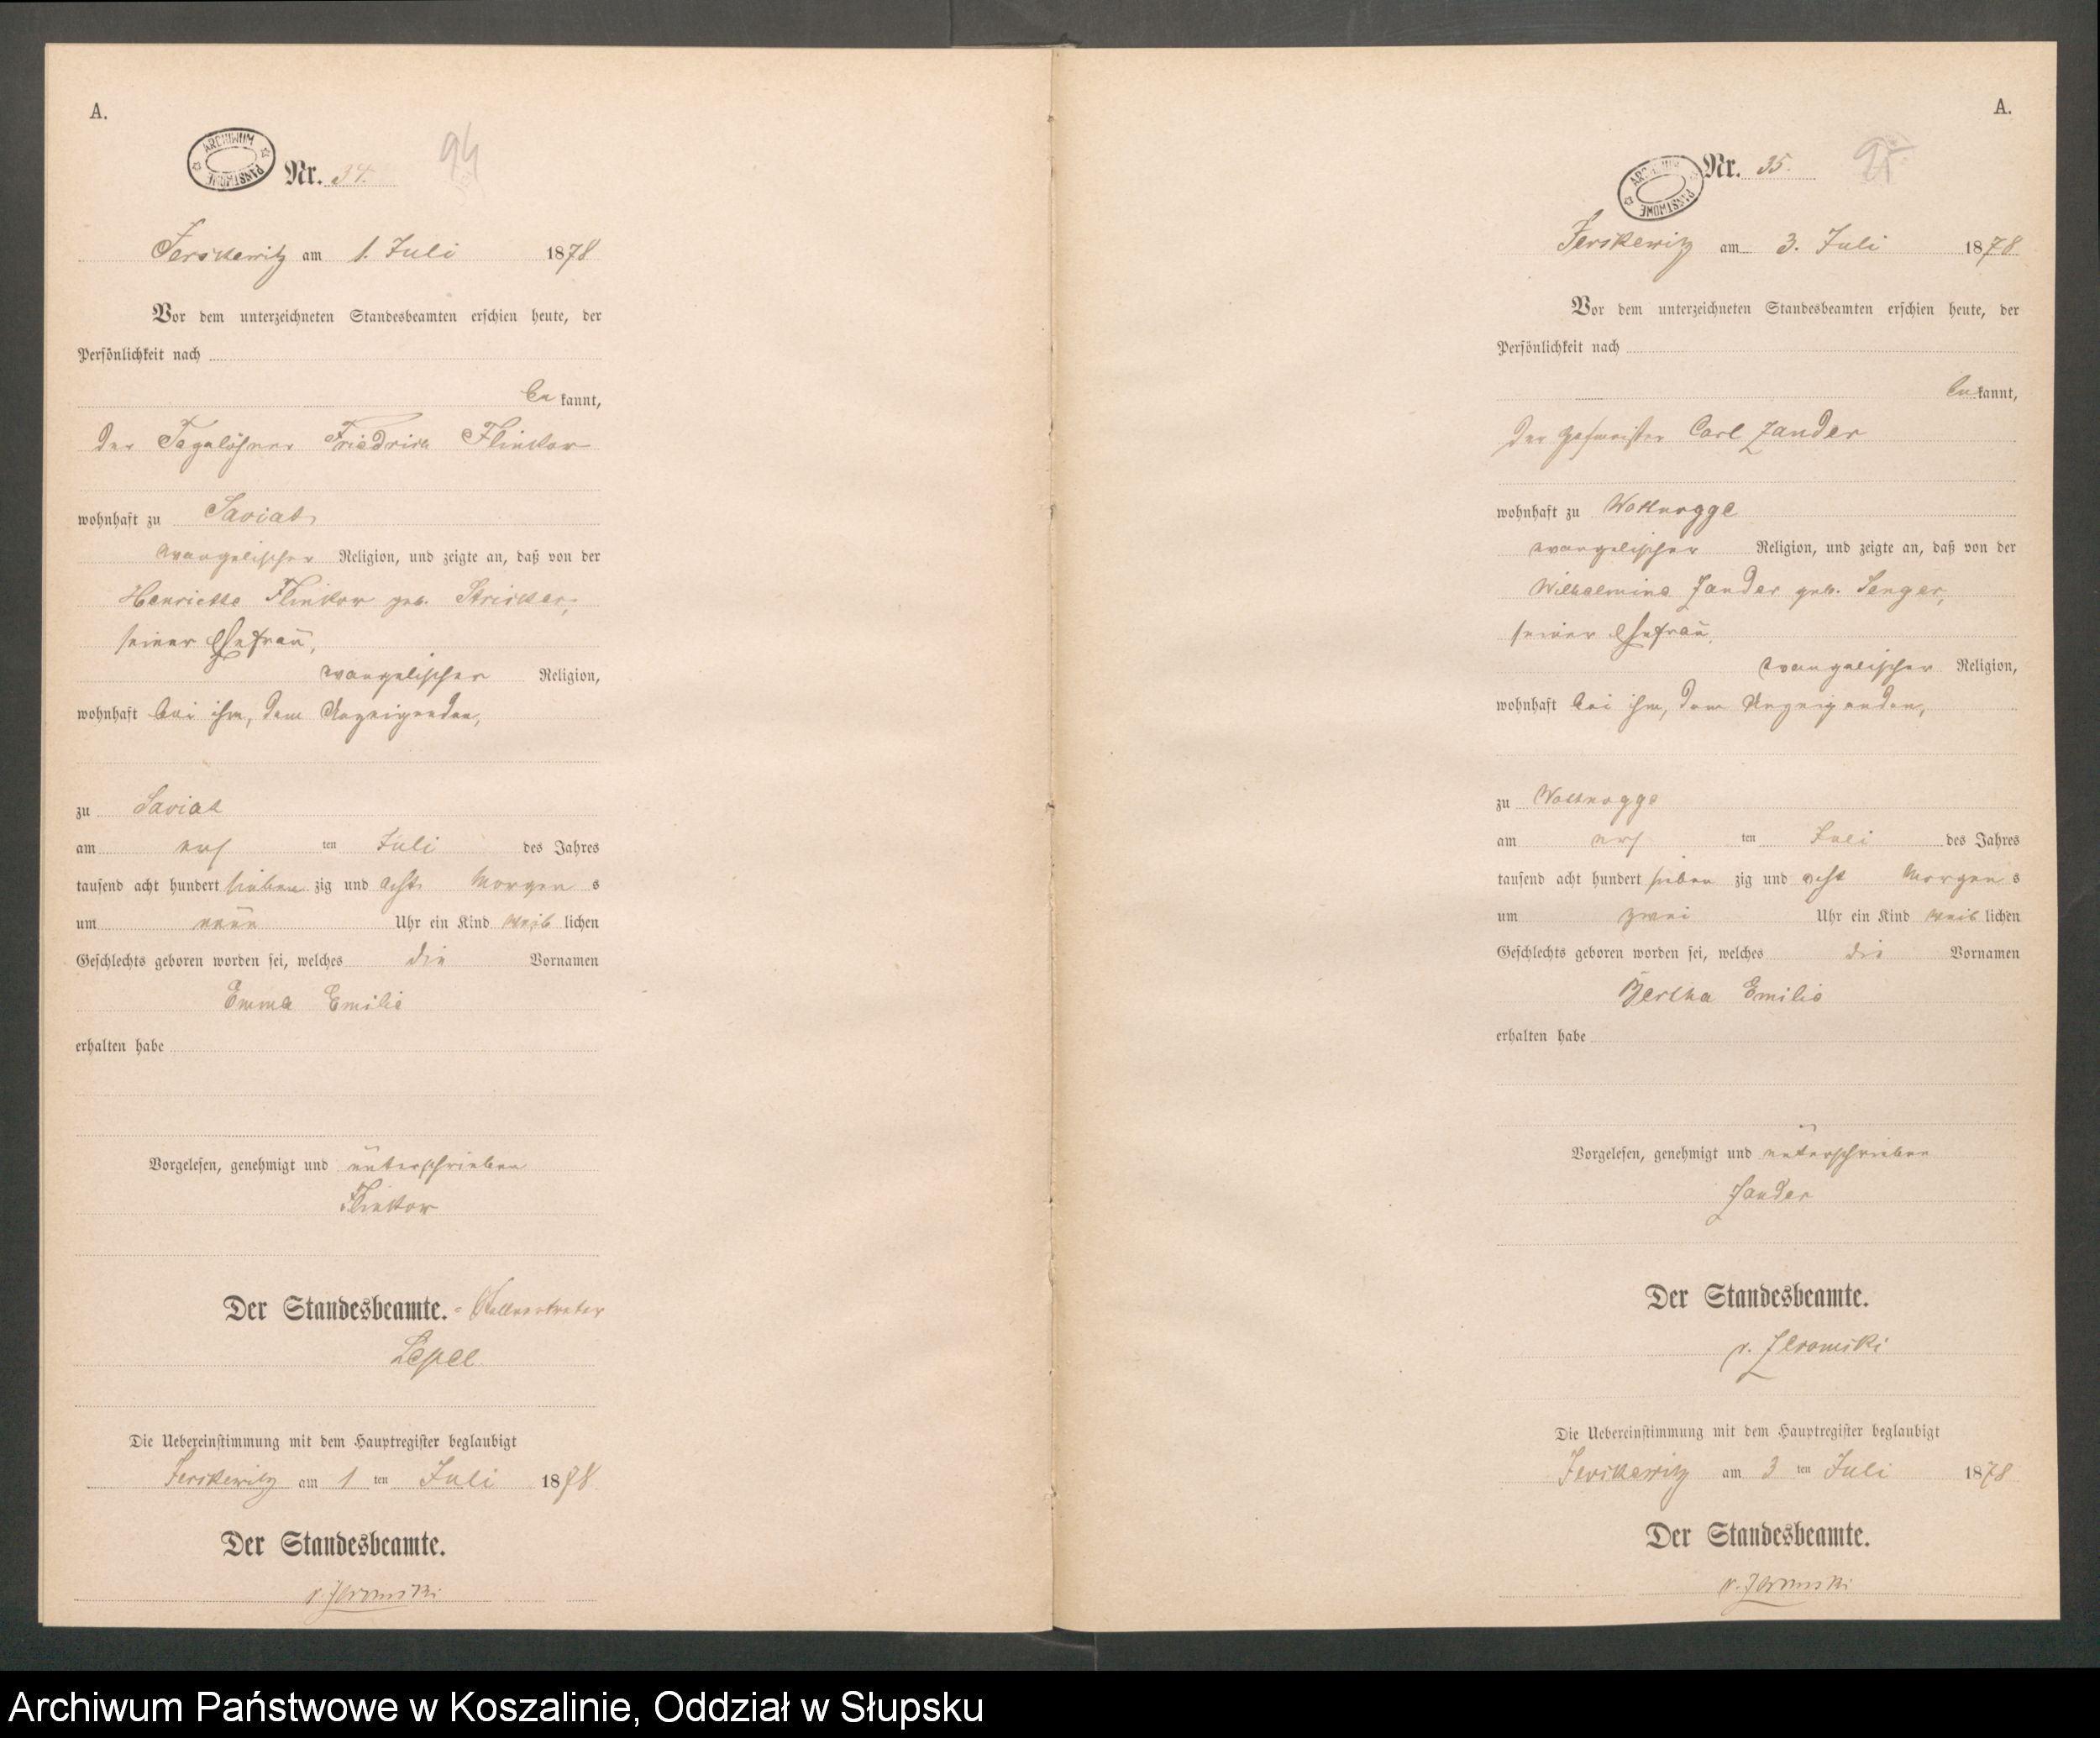 A.
ARCHIWUM PAŃSTWOWE
Nr. 34.
94
Jerskewitz am 1. Juli 1878
Vor dem unterzeichneten Standesbeamten erschien heute, der
Persönlichkeit nach
be kannt,
der Tagelöhner Friedrich Flinkow
wohnhaft zu Saviat
evangelischer Religion, und zeigte an, daß von der
Henriette Flinkow geb. Stricker,
seiner Ehefrau,
evangelischer Religion,
wohnhaft bei ihm, dem Anzeigenden,
zu Saviat
am ersten Juli des Jahres
tausend acht hundert sieben zig und acht Morgen s
um neun Uhr ein Kind weib lichen
Geschlechts geboren worden sei, welches die Vornamen
Emma Emilie
erhalten habe
Vorgelesen, genehmigt und unterschrieben
Flinkow
Der Standesbeamte. = Stellvertreter
Lepel
Die Uebereinstimmung mit dem Hauptregister beglaubigt
Jerskewitz am 1 ten Juli 1878
Der Standesbeamte.
v. Zeromski
A.
ARCHIWUM PAŃSTWOWE
Nr. 35.
Jerskewitz am 3. Juli 1878
Vor dem unterzeichneten Standesbeamten erschien heute, der
Persönlichkeit nach
be kannt,
der Hofmeister Carl Zander
wohnhaft zu Wottnogge
evangelischer Religion, und zeigte an, daß von der
Wilhelmine Zander geb. Senger,
seiner Ehefrau,
evangelischer Religion,
wohnhaft bei ihm, dem Anzeigenden,
zu Wottnogge
am ersten Juli des Jahres
tausend acht hundert sieben zig und acht Morgen s
um zwei Uhr ein Kind weib lichen
Geschlechts geboren worden sei, welches die Vornamen
Bertha Emilie
erhalten habe
Vorgelesen, genehmigt und unterschrieben
Zander
Der Standesbeamte.
v. Zeromski
Die Uebereinstimmung mit dem Hauptregister beglaubigt
Jerskewitz am 3 ten Juli 1878
Der Standesbeamte.
v. Zeromski
Archiwum Państwowe w Koszalinie, Oddział w Słupsku